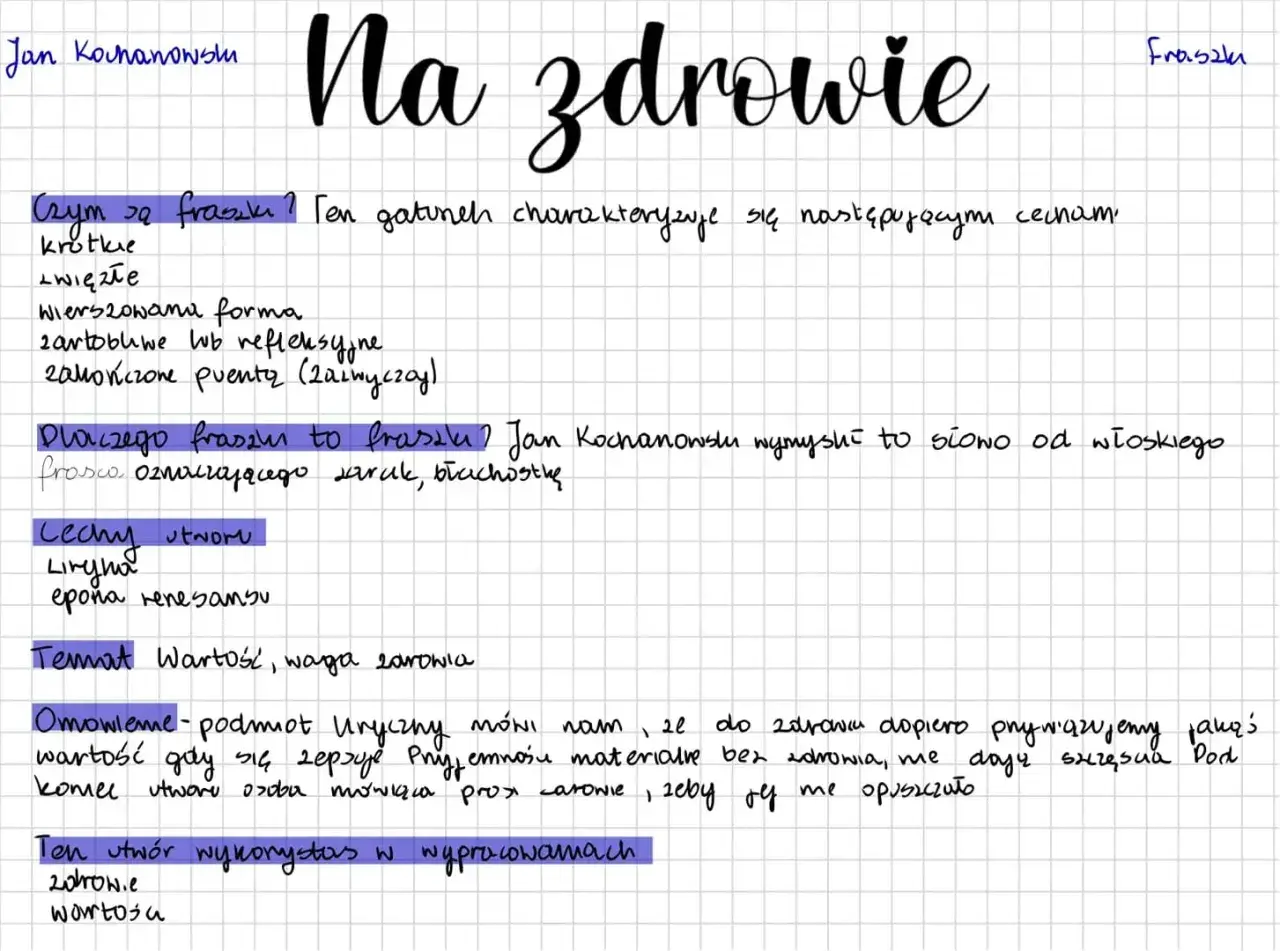 Jan Kochanowski
Na zdrowie
Fraszki
Czym są fraszki? Ten gatunek charakteryzuje się następującymi cechami
krótkie
zwięzłe
wierszowana forma
żartobliwe lub refleksyjne
zakończone puentą (zazwyczaj)
Dlaczego fraszki to fraszki? Jan Kochanowski wymyślił to słowo od włoskiego
frasca oznaczającego żarcik, błachostkę
Cechy utworu
Liryka
epoka renesansu
Temat Wartość, waga zdrowia
Omówienie - podmiot liryczny mówi nam, że do zdrowia dopiero przywiązujemy jakąś
wartość gdy się zepsuje Przyjemności materialne bez zdrowia, nie dają szczęścia Pod
koniec utworu osoba mówiąca prosi zdrowie, żeby jej nie opuszczało
Ten utwór wykorzystas w wypracowaniach
zdrowie
wartości